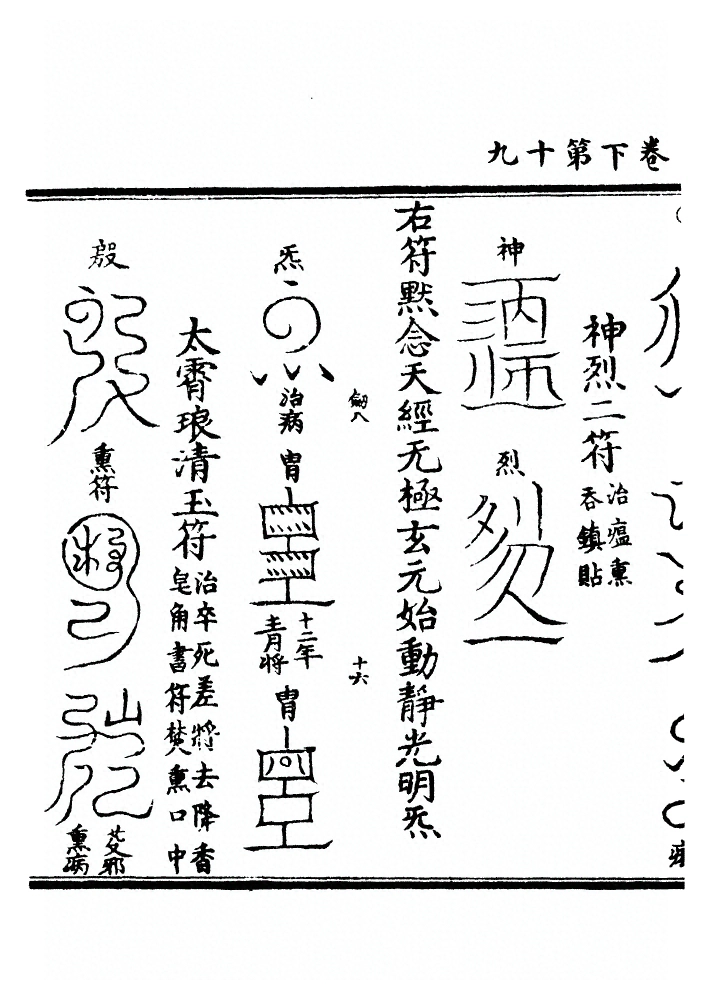 九十第下卷
神烈二符
治瘟熏
吞鎮貼
神
烈
右符黙念天經无極玄元始動靜光明炁
劒八
十六
炁
治病
胄
十二年
青將
胄
太霄琅清玉符
治卒死差將去降香
皂角書符焚熏口中
殿
熏符
熏病